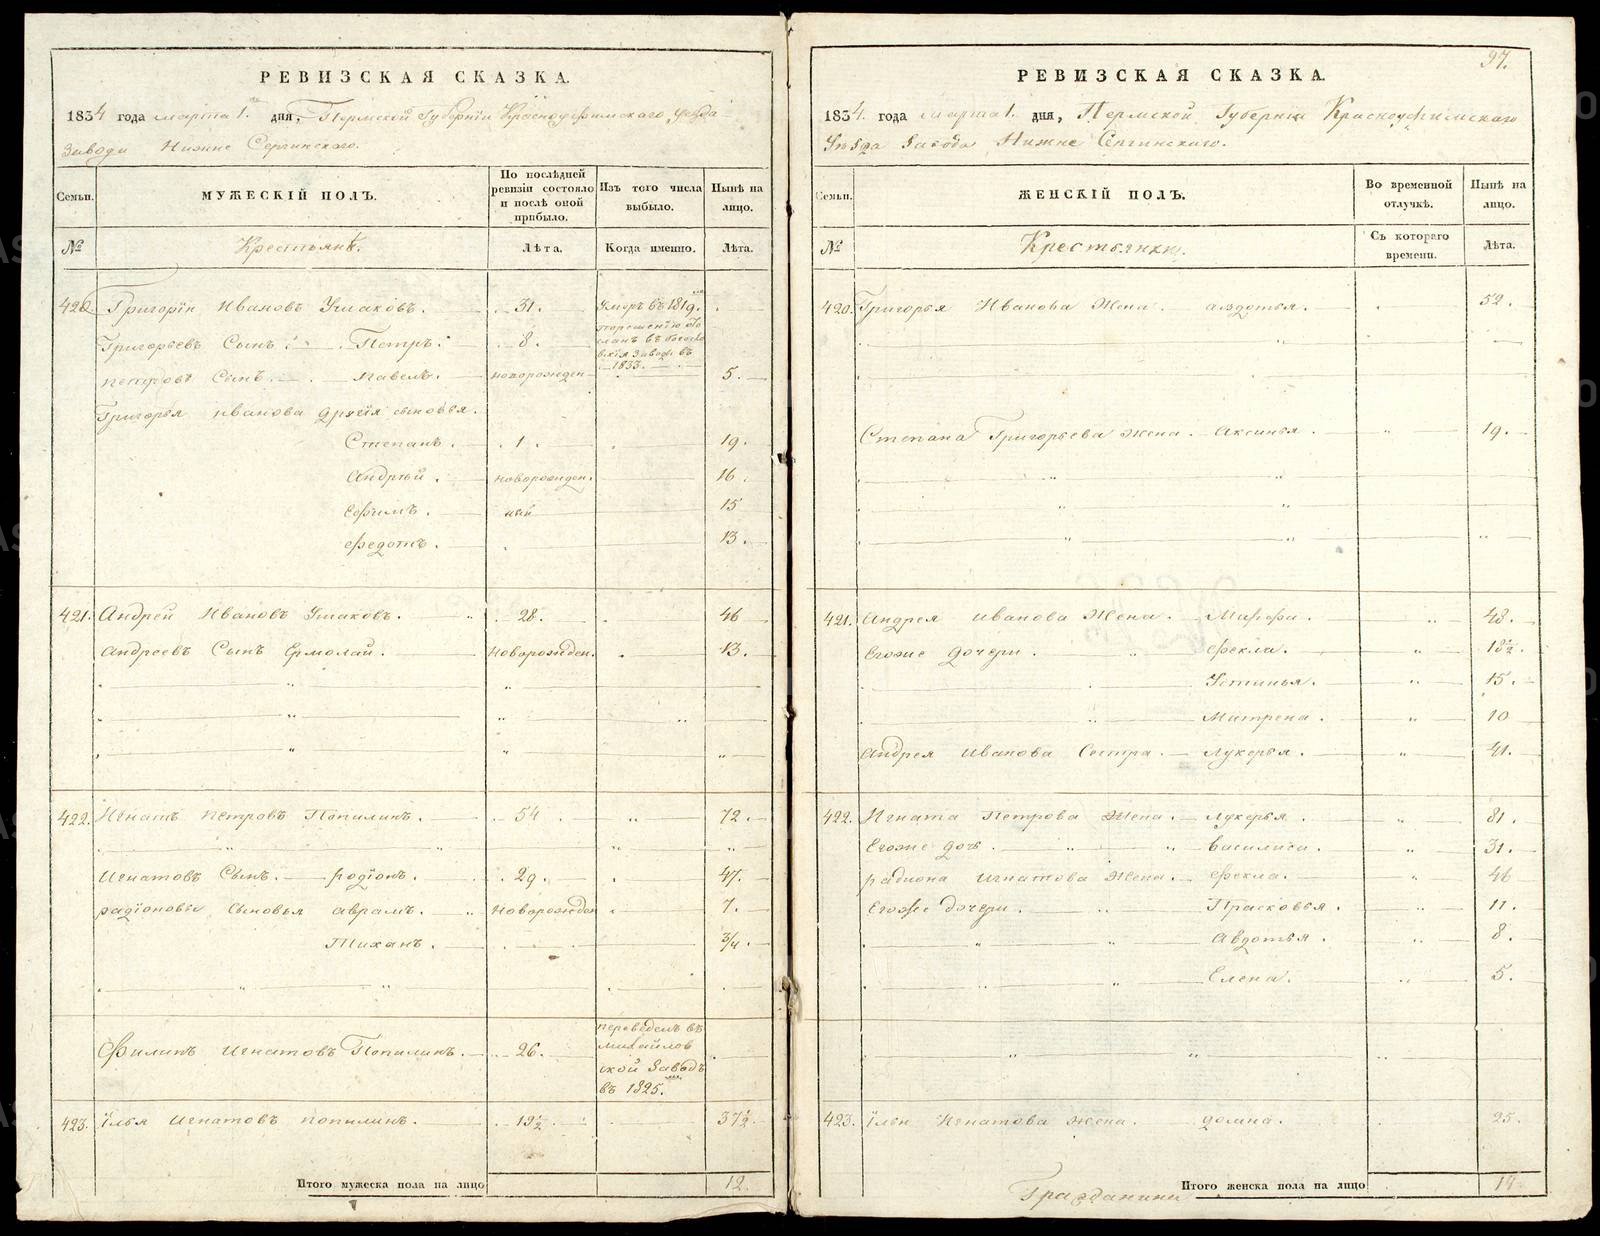 РЕВИЗСКАЯ СКАЗКА.
1834 года марта 1. дня, Пермской Губернiи Красноуфимскаго уѣзда
Завода Нижне Сергинскаго.
Семьи. МУЖЕСКIЙ ПОЛЪ. По послѣдней ревизiи состояло и послѣ оной прибыло. Изъ того числа выбыло. Нынѣ на лицо.
№ Крестьянѣ. Лѣта. Когда именно. Лѣта.
420. Григорiй Ивановъ Ушаковъ. 31. Умеръ въ 1819.
Григорьевъ Сынъ Петръ. 8. въ 1833.
Петровъ Сынъ. Павелъ. новорожден 5.
Григорья Иванова другiя сыновья.
Степанъ. 1. 19.
Андрѣй. новорожден. 16.
Ефимъ. ный 15
Федотъ. 13.
421. Андрей Ивановъ Ушаковъ. 28. 46
Андреевъ Сынъ Ермолай. Новорожден. 13.
422. Игнатъ Петровъ Попилинъ. 54 72.
Игнатовъ Сынъ. родiонъ. 29. 47.
радiоновы Сыновья аврамъ. Новорожден 7.
Тиханъ. 3/4.
Филипъ Игнатовъ Попилинъ. 26. переведенъ въ Михайловской Заводъ въ 1825.
423. Iлья Игнатовъ попилинъ. 19½ 37½.
Итого мужеска пола на лицо 12.
97.
РЕВИЗСКАЯ СКАЗКА.
1834. года марта 1. дня, Пермской Губернiи Красноуфимскаго
Уѣзда Завода Нижне Сергинскаго.
Семьи. ЖЕНСКIЙ ПОЛЪ. Во временной отлучкѣ. Нынѣ на лицо.
№ Крестьянки. Съ котораго времени. Лѣта.
420. Григорья Иванова Жена. авдотья. 52.
Степана Григорьева Жена. Аксинья. 19.
421. Андрея Иванова Жена. Марфа. 48.
Егоже дочери. Фекла. 18½.
Устинья. 15.
Матрена. 10
Андрея Иванова Сестра. Лукерья. 41.
422. Игната Петрова Жена. Лукерья. 81.
Егоже дочь. Василиса. 31.
радиона Игнатова Жена. Фекла. 46
Егоже дочери. Прасковья. 11.
Авдотья. 8.
Елена. 5.
423. Iльи Игнатова жена. домна. 25.
Итого женска пола на лицо 14